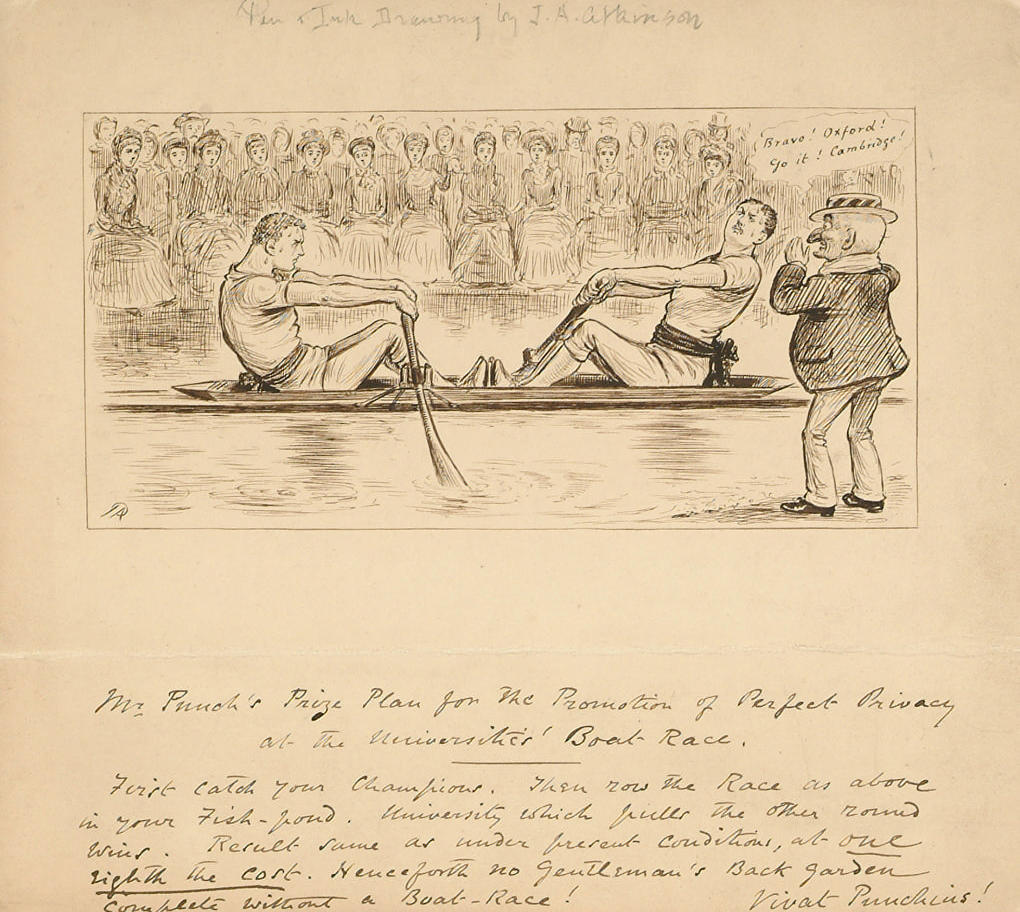 Pen & Ink Drawing by J. A. Atkinson
Bravo! Oxford!
Go it! Cambridge!
Mr Punch's Prize Plan for the Promotion of Perfect Privacy
at the Universities' Boat Race.
First catch your Champions. Then row the Race as above
in your Fish-pond. University which pulls the other round
wins. Result same as under present conditions, at one
eighth the cost. Henceforth no Gentleman's Back garden
complete without a Boat-Race! Vivat Punchius!